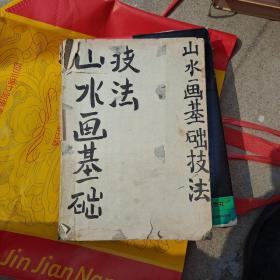 山水画基础
技法
山水画基础技法
Jin Jian Na